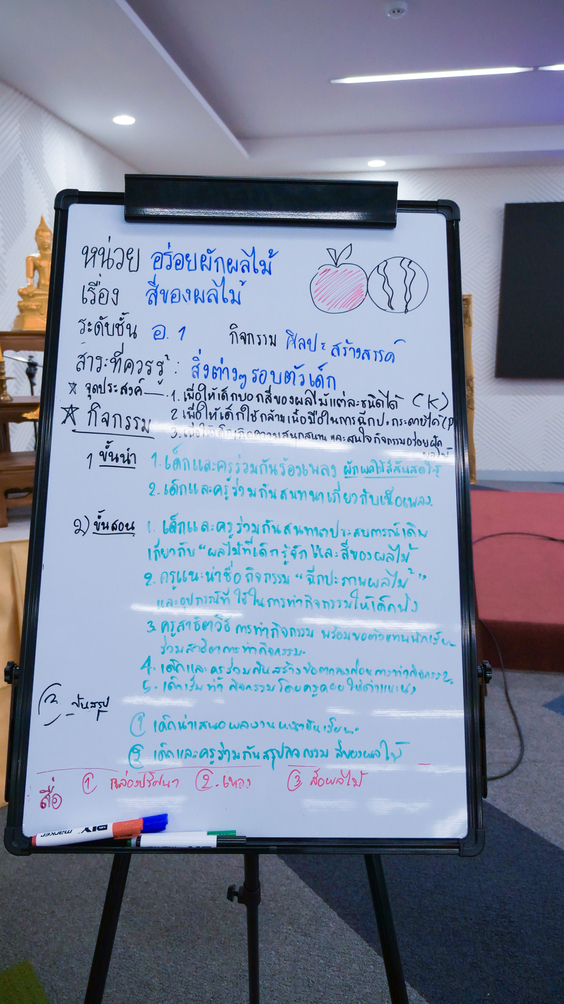 หน่วย อร่อยผักผลไม้
เรื่อง สีของผลไม้
ระดับชั้น อ. 1 กิจกรรม ศิลปะ สร้างสรรค์
สาระที่ควรรู้ : สิ่งต่างๆ รอบตัวเด็ก
* จุดประสงค์ 1. เพื่อให้เด็กบอกสีของผลไม้แต่ละชนิดได้ (K)
* กิจกรรม 2 เพื่อให้เด็กใช้กล้ามเนื้อมือในการฉีกปะกระดาษได้ (P
3. และสนใจกิจกรรมอร่อยผัก
ผลไม้
1 ขั้นนำ 1. เด็กและครูร่วมกันร้องเพลง ผักผลไม้สีสันสดใส
2. เด็กและครูร่วมกันสนทนาเกี่ยวกับเนื้อเพลง
2) ขั้นสอน 1. เด็กและครูร่วมกันสนทนาประสบการณ์เดิม
เกี่ยวกับ "ผลไม้ที่เด็กรู้จัก และสีของผลไม้
2. ครูแนะนำชื่อกิจกรรม "ฉีกปะภาพผลไม้"
และอุปกรณ์ที่ใช้ในการทำกิจกรรมให้เด็กฟัง
3. ครูสาธิตวิธีการทำกิจกรรม พร้อมขอตัวแทนนักเรียน
ร่วมสาธิตการทำกิจกรรม
4. เด็กและครูร่วมกันสร้างข้อตกลงก่อนการทำกิจกรรม
5. เด็กเริ่มทำกิจกรรมโดยครูคอยให้คำแนะนำ
3. ขั้นสรุป
1 เด็กนำเสนอผลงานหน้าชั้นเรียน
2 เด็กและครูร่วมกันสรุปกิจกรรม สีของผลไม้
สื่อ 1 กล่องปริศนา 2. เพลง 3 สื่อผลไม้